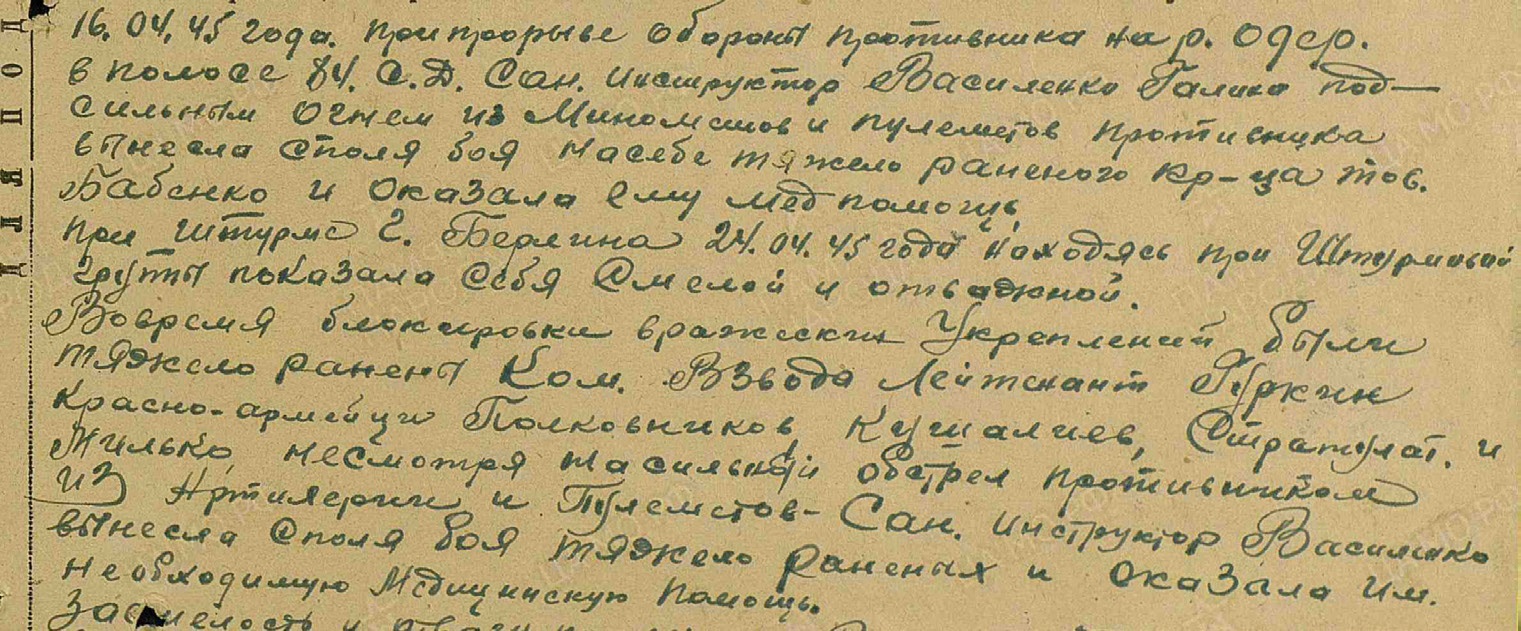 16.04.45 года. При прорыве обороны противника на р. Одер.
в полосе 84. С.Д. Сан. инструктор Василенко Галина под-
сильным огнем из Минометов и пулеметов противника
вынесла с поля боя на себе тяжело раненого кр-ца тов.
Бабенко и оказала ему мед помощь,
при штурме г. Берлина 24.04.45 года находясь при Штурмовой
групы показала себя Смелой и отважной.
Вовремя блокировки вражеских Укреплений были
тяжело ранены Ком. Взвода Лейтенант Пуркин
Красно-армейци Полковников, Кушалиев, Стратулат. и
Милько, несмотря на сильный обстрел противником
из Артилерии и Пулеметов- Сан. инструктор Василенко
вынесла с поля боя тяжело раненых и оказала им.
необходимую Медицинскую помощь.
За смелость и